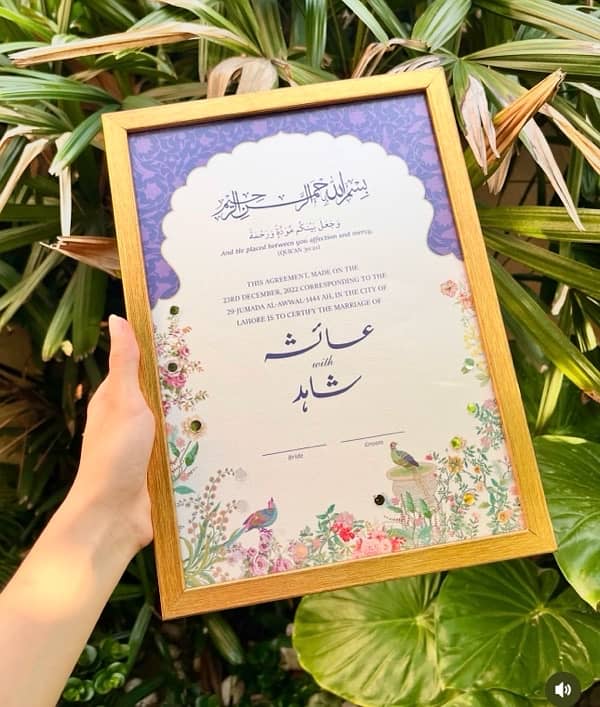 بسم الله الرحمن الرحيم
وَجَعَلَ بَيْنَكُم مَّوَدَّةً وَرَحْمَةً
And He placed between you affection and mercy.
(QURAN 30:21)
THIS AGREEMENT, MADE ON THE
23RD DECEMBER, 2022 CORRESPONDING TO THE
29-JUMADA AL-AWWAL-1444 AH, IN THE CITY OF
LAHORE IS TO CERTIFY THE MARRIAGE OF
عائشہ
with
شاہد
Bride
Groom